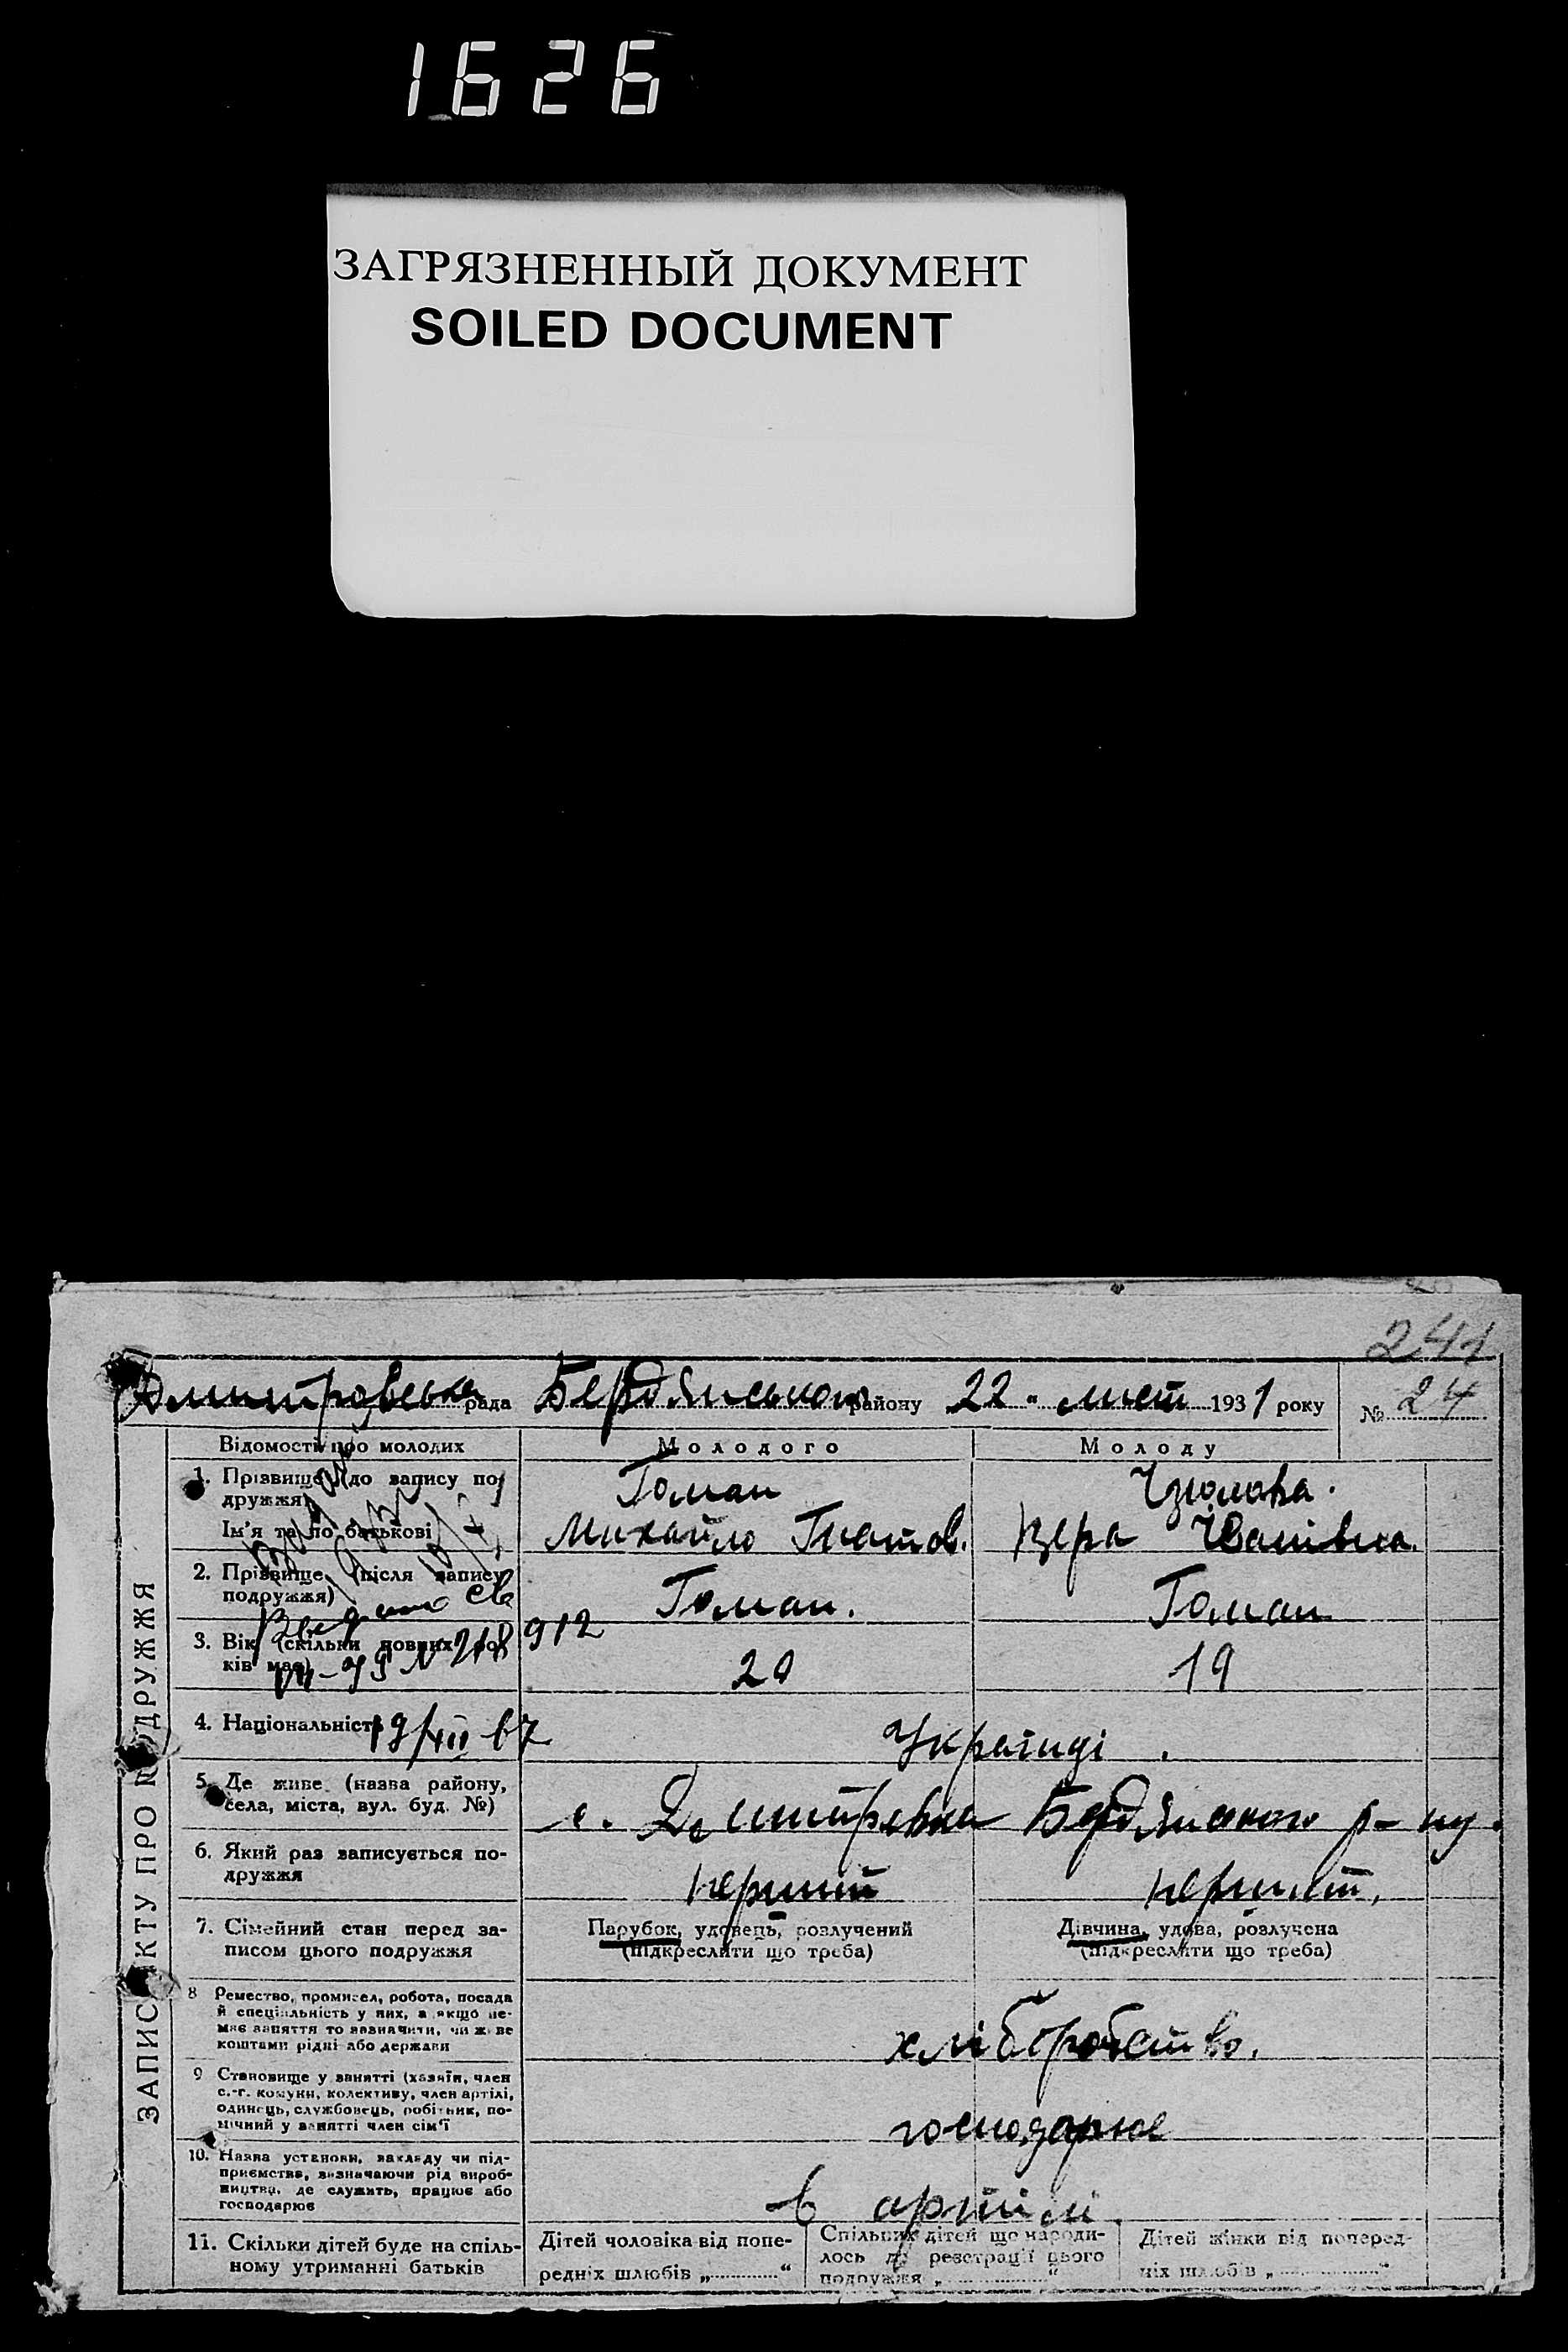 1626
ЗАГРЯЗНЕННЫЙ ДОКУМЕНТ
SOILED DOCUMENT
241
Дмитровська рада Бердянського району 22 " лист 1931 року № 24
ЗАПИС АКТУ ПРО ПОДРУЖЖЯ
Відомости про молодих
Молодого
Молоду
1. Прізвище (до запису по-
дружжя)
Ім'я та по батькові
Гоман
Михайло Гнатов.
Вера Іванівна.
2. Прізвище (після запису
подружжя)
Гоман.
Гоман
3. Вік (скільки повних ро-
ків має)
912
20
19
4. Національність
19/XII 67
Українці.
5. Де живе (назва району,
села, міста, вул. буд. №)
с. Дмитровка Бердянського р-ну.
6. Який раз записується по-
дружжя
перший
перший,
7. Сімейний стан перед за-
писом цього подружжя
Парубок, удовець, розлучений
(підкреслити що треба)
Дівчина, удова, розлучена
(підкреслити що треба)
8 Ремество, промисел, робота, посада
й спеціальність у них, а якщо не-
має заняття то зазначити, чи живе
коштами рідні або держави
хліборобство.
9 Становище у занятті (хазяїн, член
с.-г. комуни, колективу, член артілі,
одинець, службовець, робітник, по-
мічний у занятті член сім'ї
господарює
10. Назва установи, закладу чи під-
приємства, зазначаючи рід вироб-
ництва, де служить, працює або
господарює
в артілі.
11. Скільки дітей буде на спіль-
ному утриманні батьків
Дітей чоловіка від попе-
редніх шлюбів „ “
Спільних дітей що народи-
лось до реєстрації цього
подружжя „ “
Дітей жінки від поперед-
ніх шлюбів „ “